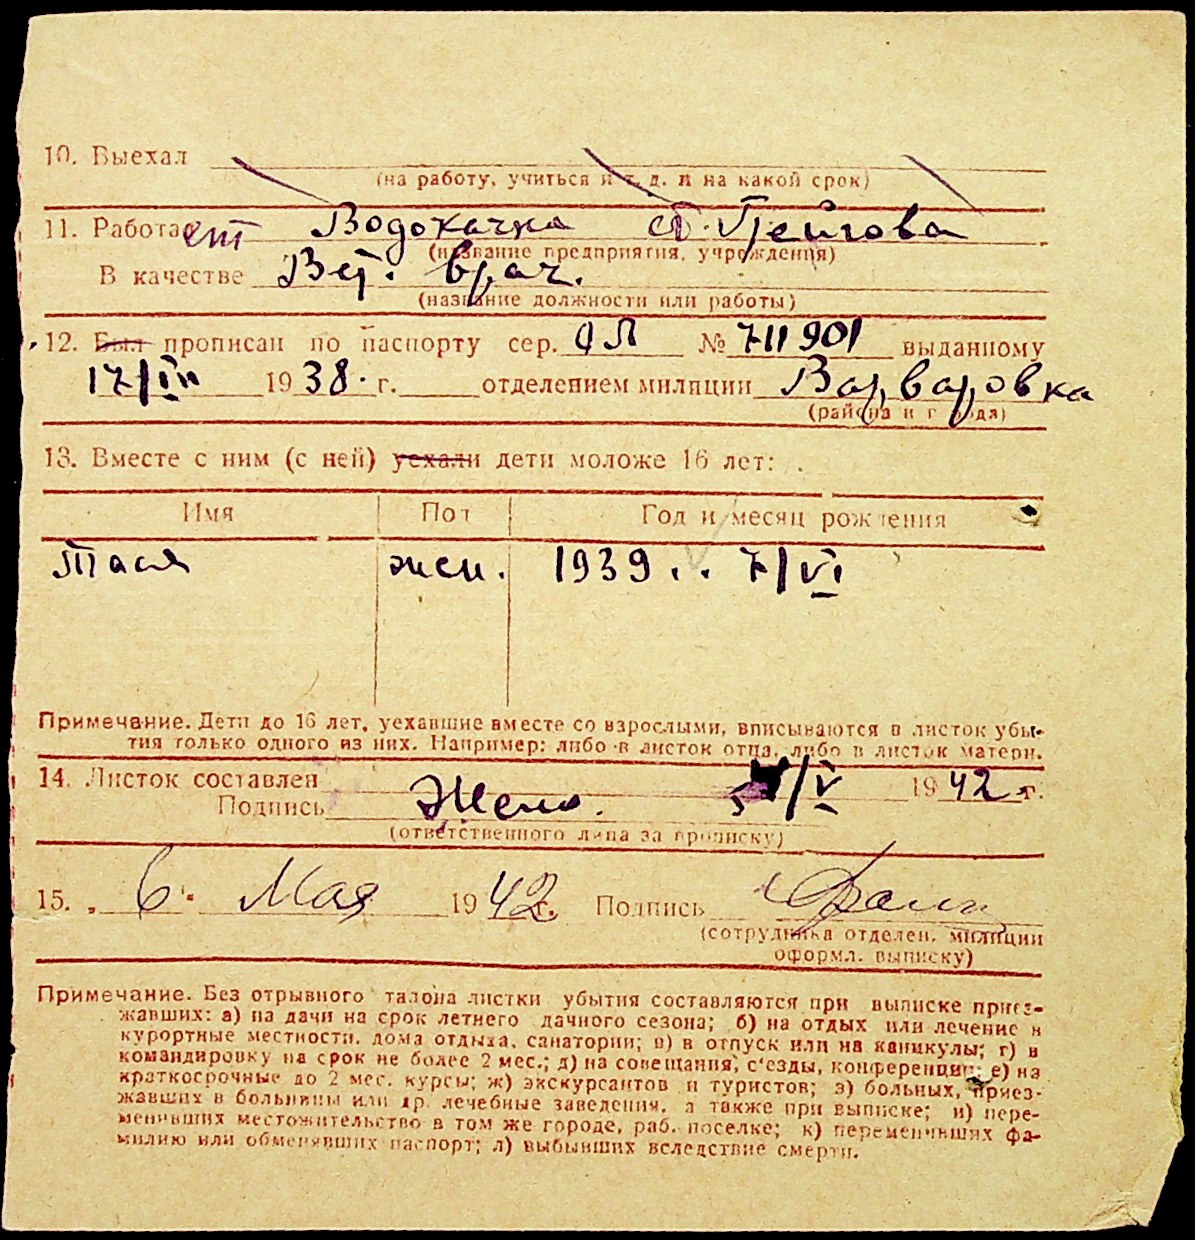 10. Выехал
(на работу, учиться и т. д. и на какой срок)
11. Работает Водокачка ст. Грейгова
(название предприятия, учреждения)
В качестве Вет. врач.
(название должности или работы)
12. Был прописан по паспорту сер. № 711901 выданному
17/IV 1938. г. отделением милиции Варваровка
(района и города)
13. Вместе с ним (с ней) уехали дети моложе 16 лет:
Имя Пол Год и месяц рождения
Тася жен. 1939 . . 7/VI
Примечание. Дети до 16 лет, уехавшие вместе со взрослыми, вписываются в листок убы-
тия только одного из них. Например: либо в листок отца, либо в листок матери.
14. Листок составлен 5/V 1942 г.
Подпись
(ответственного лица за прописку)
15. „ 6 " Мая 1942 г. Подпись
(сотрудника отделен. милиции
оформл. выписку)
Примечание. Без отрывного талона листки убытия составляются при выписке приез-
жавших: а) на дачи на срок летнего дачного сезона; б) на отдых или лечение в
курортные местности, дома отдыха, санатории; в) в отпуск или на каникулы; г) в
командировку на срок не более 2 мес.; д) на совещания, с'езды, конференции; е) на
краткосрочные до 2 мес. курсы; ж) экскурсантов и туристов; з) больных, приез-
жавших в больницы или др. лечебные заведения, а также при выписке; и) пере-
менивших местожительство в том же городе, раб. поселке; к) переменивших фа-
милию или обменявших паспорт; л) выбывших вследствие смерти.